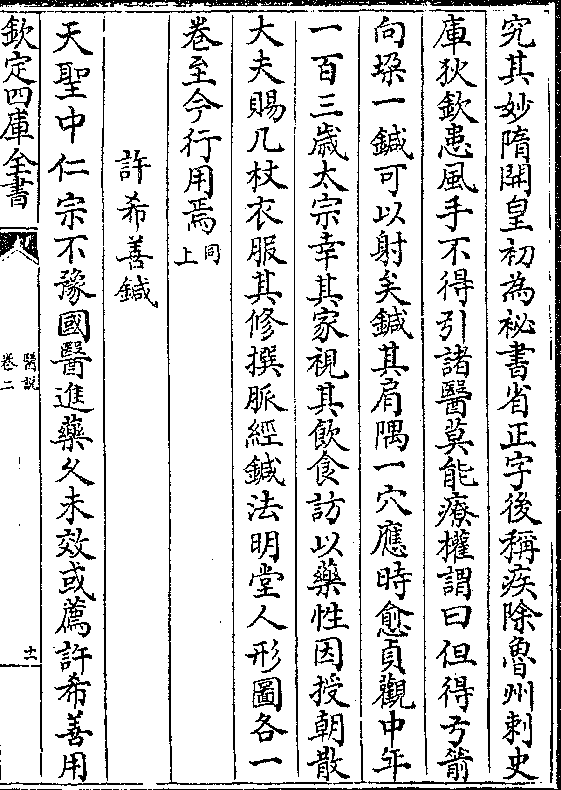 究其妙隋開皇初為祕書省正字後稱疾除魯州刺史
庫狄欽患風手不得引諸醫莫能療權謂曰但得弓箭
向垜一鍼可以射矣鍼其肩隅一穴應時愈貞觀中年
一百三歲太宗幸其家視其飲食訪以藥性因授朝散
大夫賜几杖衣服其修撰脈經鍼法明堂人形圖各一
卷至今行用焉同上
許希善鍼
天聖中仁宗不豫國醫進藥久未效或薦許希善用
欽定四庫全書
醫說
卷二
十一